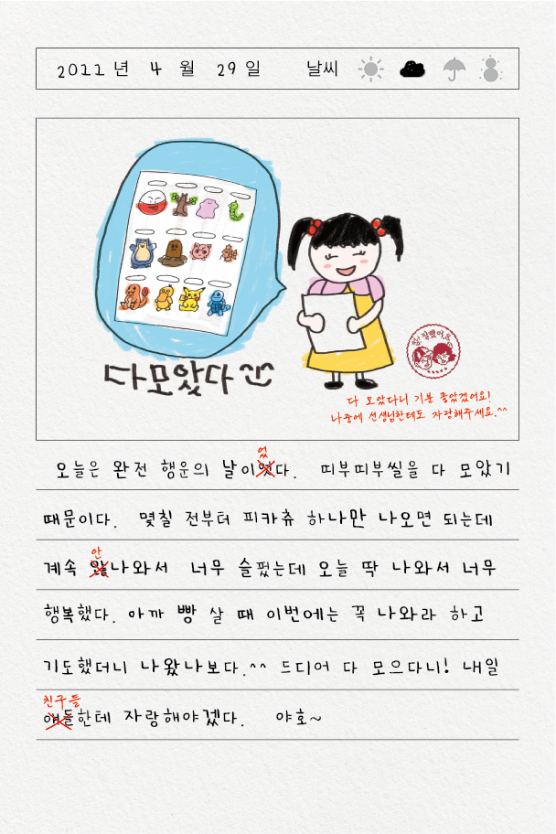 2022 년 4 월 29 일 날씨
다모았다^^
참! 잘했어요
다 모았다니 기분 좋았겠어요!
나중에 선생님한테도 자랑해주세요.^^
었
오늘은 완전 행운의 날이엿다. 띠부띠부씰을 다 모았기
때문이다. 몇칠 전부터 피카츄 하나만 나오면 되는데
안
계속 않나와서 너무 슬펐는데 오늘 딱 나와서 너무
행복했다. 아까 빵 살 때 이번에는 꼭 나와라 하고
기도했더니 나왔나보다.^^ 드디어 다 모으다니! 내일
친구들
애들한테 자랑해야겠다. 야호~